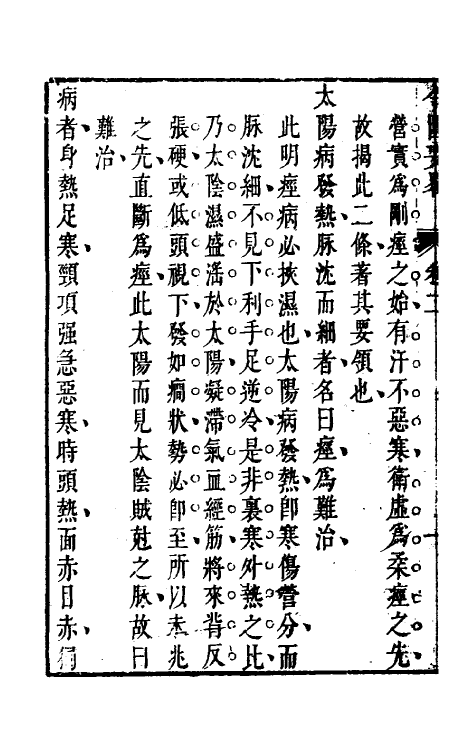 營實為剛痙之始有汗不惡寒衛虛為柔痙之先
故揭此二條著其要領也
太陽病發熱脉沈而細者名曰痙為難治
此明痙病必挾濕也太陽病發熱卽寒傷營分而
脉沈細不見下利手足逆冷是非裏寒外熱之比
乃太陰濕盛滛於太陽凝滯氣血經筋將來背反
張硬或低頭視下發如癇狀勢必卽至所以未兆
之先直斷為痙此太陽而見太陰賊尅之脉故曰
難治
病者身熱足寒頸項强急惡寒時頭熱面赤目赤獨